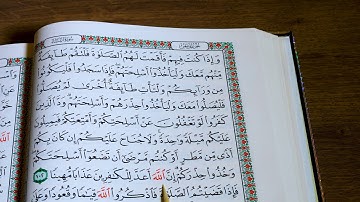 وَإِذَا كُنتَ فِيهِمْ فَأَقَمْتَ لَهُمُ الصَّلَوٰةَ فَلْتَقُمْ طَآئِفَةٌ
مِّنْهُم مَّعَكَ وَلْيَأْخُذُوٓا۟ أَسْلِحَتَهُمْ فَإِذَا سَجَدُوا۟ فَلْيَكُونُوا۟
مِن وَرَآئِكُمْ وَلْتَأْتِ طَآئِفَةٌ أُخْرَىٰ لَمْ يُصَلُّوا۟
فَلْيُصَلُّوا۟ مَعَكَ وَلْيَأْخُذُوا۟ حِذْرَهُمْ وَأَسْلِحَتَهُمْ وَدَّ الَّذِينَ
كَفَرُوا۟ لَوْ تَغْفُلُونَ عَنْ أَسْلِحَتِكُمْ وَأَمْتِعَتِكُمْ فَيَمِيلُونَ
عَلَيْكُم مَّيْلَةً وَٰحِدَةً وَلَا جُنَاحَ عَلَيْكُمْ إِن كَانَ بِكُمْ
أَذًى مِّن مَّطَرٍ أَوْ كُنتُم مَّرْضَىٰٓ أَن تَضَعُوٓا۟ أَسْلِحَتَكُمْ
وَخُذُوا۟ حِذْرَكُمْ إِنَّ اللَّهَ أَعَدَّ لِلْكَٰفِرِينَ عَذَابًا مُّهِينًا ١٠٢
فَإِذَا قَضَيْتُمُ الصَّلَوٰةَ فَاذْكُرُوا۟ اللَّهَ قِيَٰمًا وَقُعُودًا وَعَلَىٰ